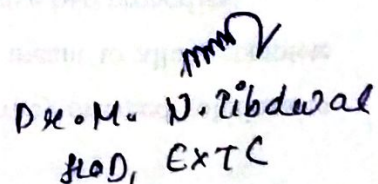 Dr. M. N. Tibdewal
HoD, EXTC